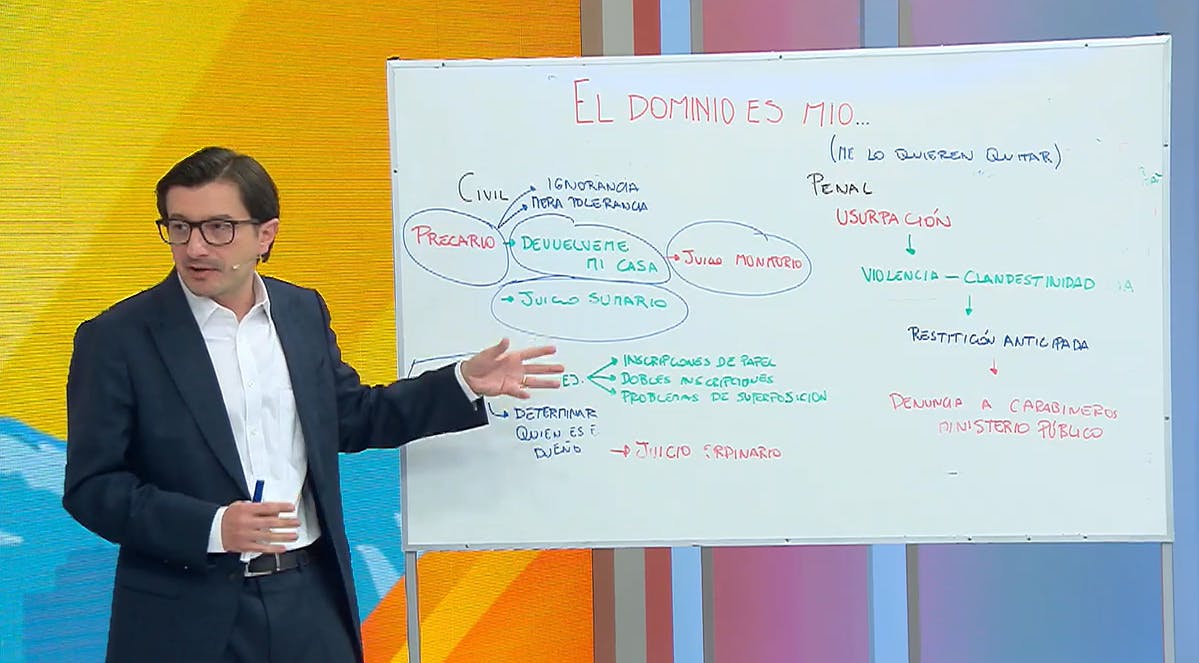 EL DOMINIO ES MIO...
(ME LO QUIEREN QUITAR)
CIVIL
IGNORANCIA
MERA TOLERANCIA
PRECARIO
DEVUELVEME
MI CASA
JUICIO MONITORIO
JUICIO SUMARIO
INSCRIPCIONES DE PAPEL
DOBLES INSCRIPCIONES
PROBLEMAS DE SUPERPOSICION
DETERMINAR
QUIEN ES E
DUEÑO
JUICIO ORDINARIO
PENAL
USURPACIÓN
VIOLENCIA — CLANDESTINIDAD
RESTITICIÓN ANTICIPADA
DENUNCIA A CARABINEROS
MINISTERIO PÚBLICO